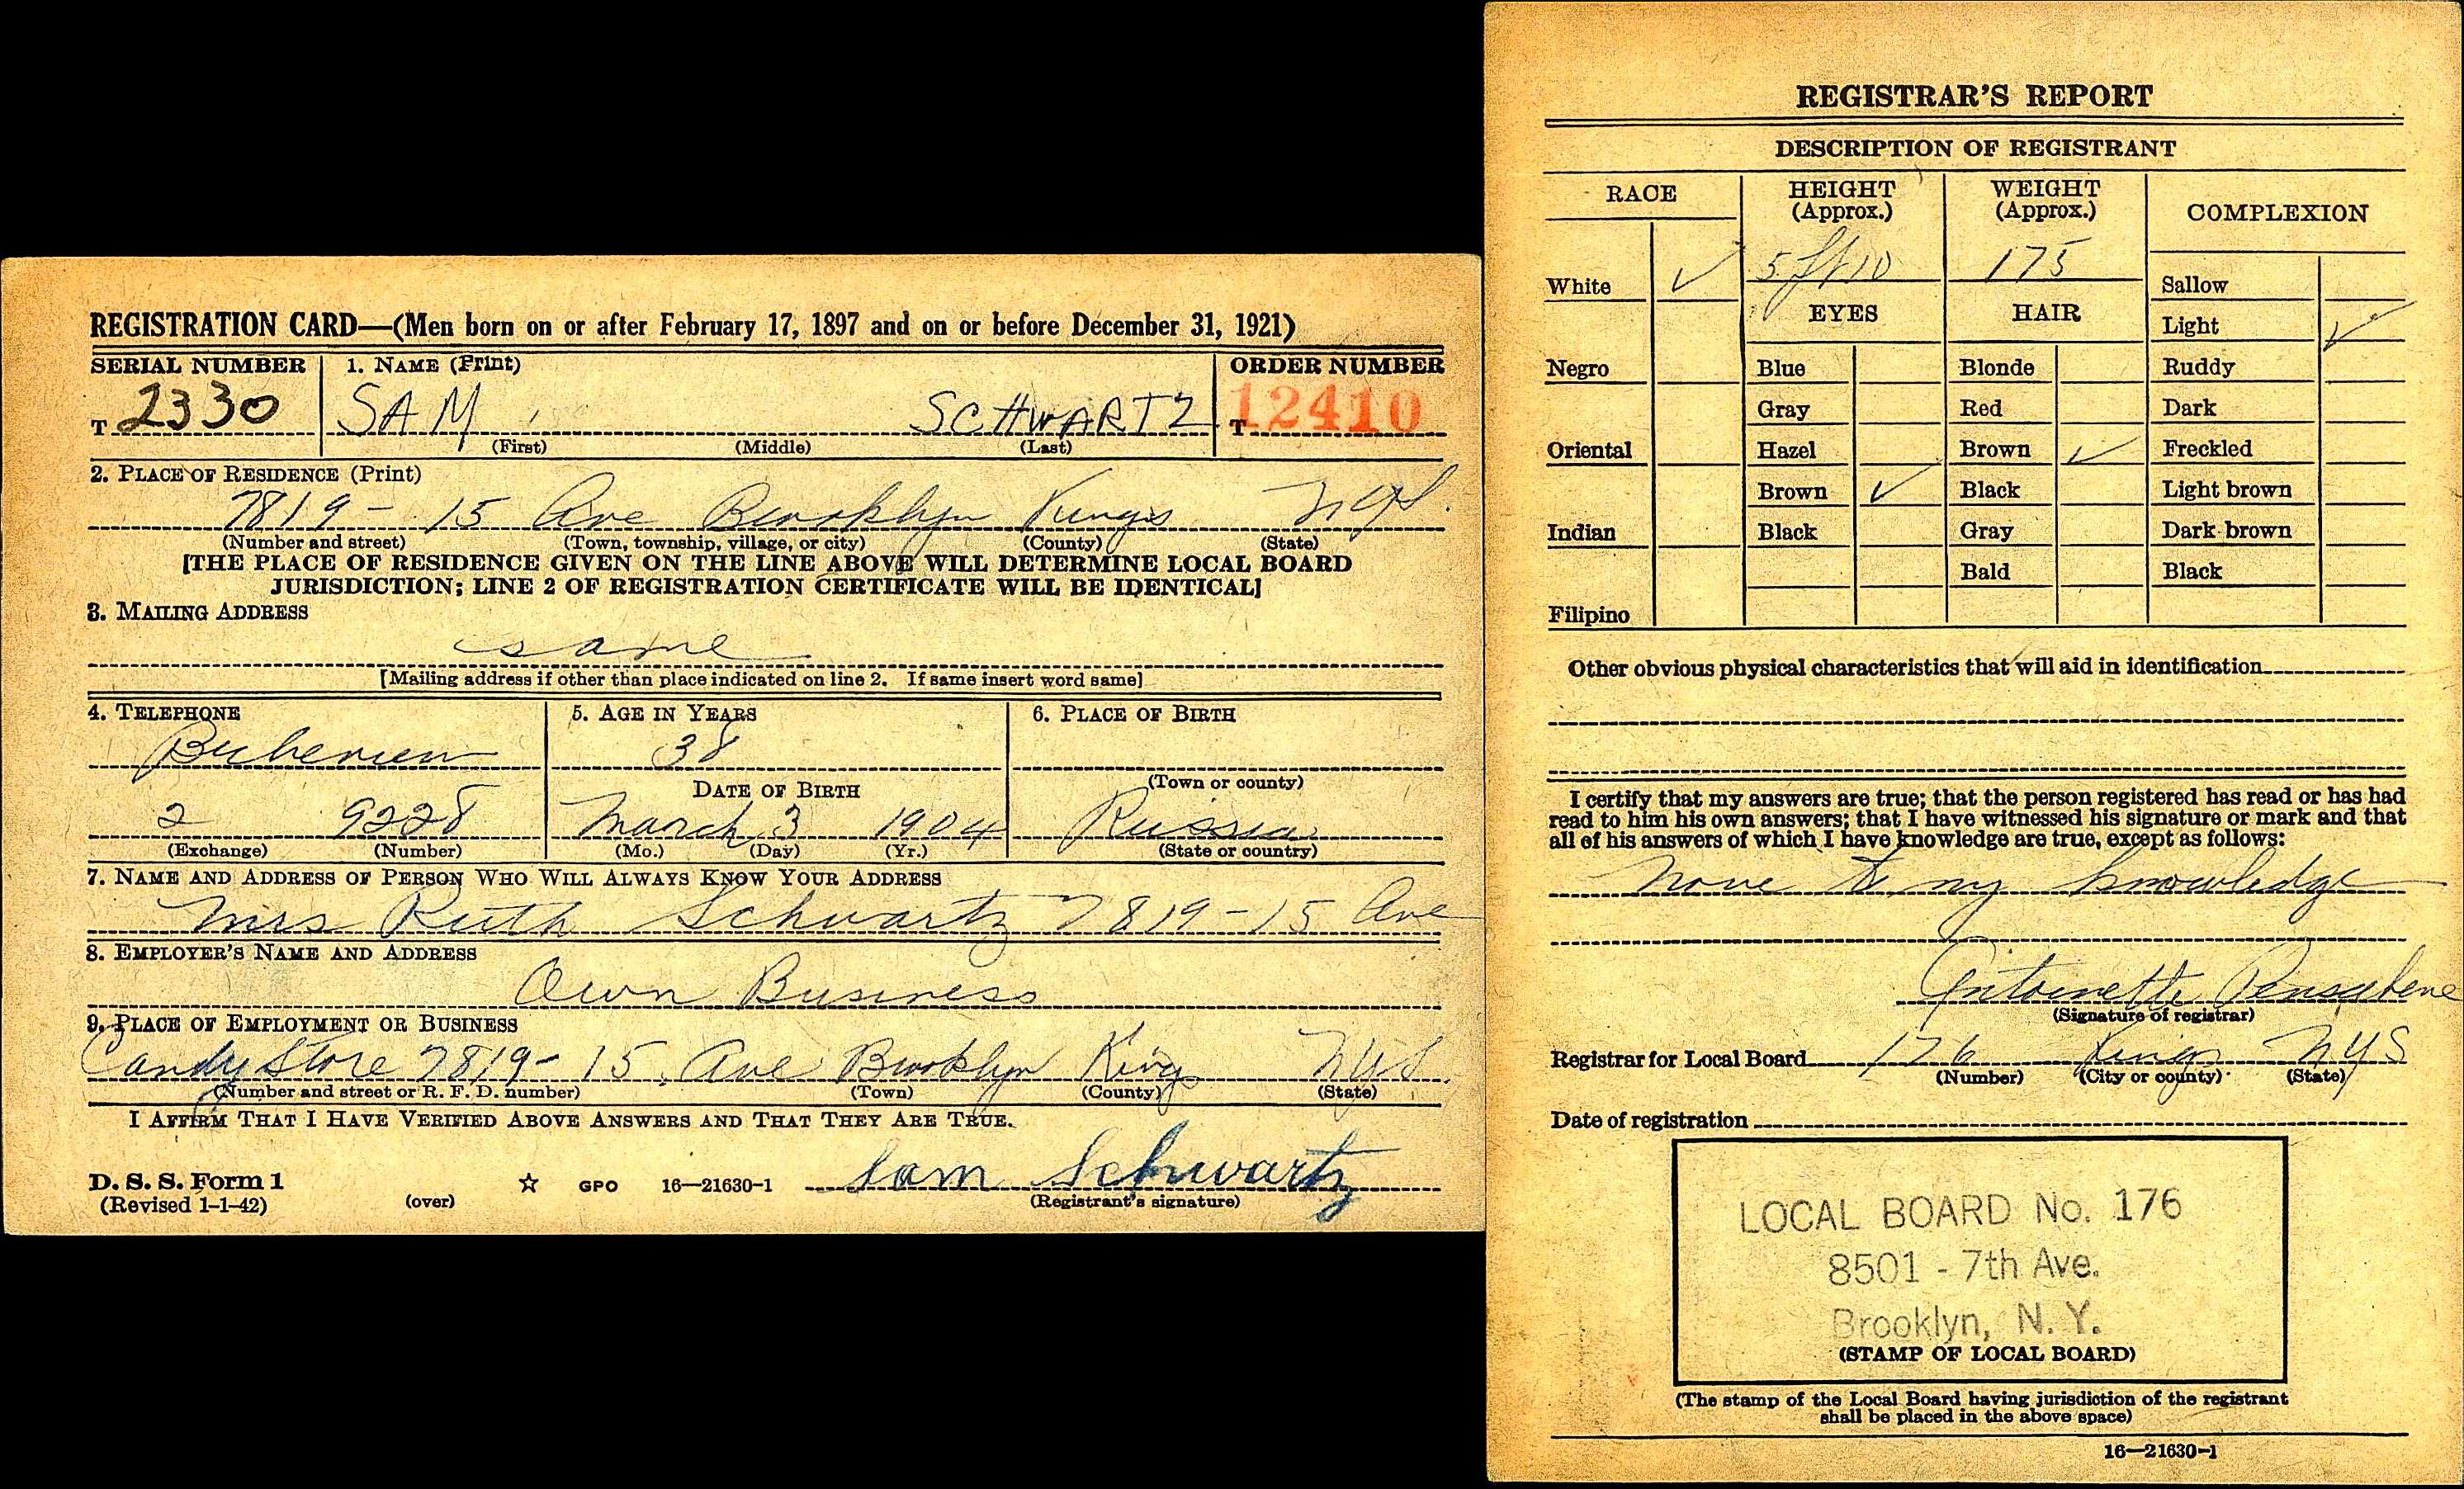 REGISTRATION CARD—(Men born on or after February 17, 1897 and on or before December 31, 1921)
SERIAL NUMBER 1. NAME (Print) ORDER NUMBER
T 2330 SAM SCHWARTZ T 12410
(First) (Middle) (Last)
2. PLACE OF RESIDENCE (Print)
7819 - 15 Ave Brooklyn Kings NYS.
(Number and street) (Town, township, village, or city) (County) (State)
[THE PLACE OF RESIDENCE GIVEN ON THE LINE ABOVE WILL DETERMINE LOCAL BOARD
JURISDICTION; LINE 2 OF REGISTRATION CERTIFICATE WILL BE IDENTICAL]
3. MAILING ADDRESS
same
[Mailing address if other than place indicated on line 2. If same insert word same]
4. TELEPHONE 5. AGE IN YEARS 6. PLACE OF BIRTH
38
DATE OF BIRTH (Town or county)
2 9228 March 3 1904 Russia
(Exchange) (Number) (Mo.) (Day) (Yr.) (State or country)
7. NAME AND ADDRESS OF PERSON WHO WILL ALWAYS KNOW YOUR ADDRESS
Mrs Ruth Schwartz 7819 - 15 Ave
8. EMPLOYER'S NAME AND ADDRESS
Own Business
9. PLACE OF EMPLOYMENT OR BUSINESS
Candy Store 7819 - 15 Ave Brooklyn Kings NYS.
(Number and street or R. F. D. number) (Town) (County) (State)
I AFFIRM THAT I HAVE VERIFIED ABOVE ANSWERS AND THAT THEY ARE TRUE.
D. S. S. Form 1 Sam Schwartz
(Revised 1-1-42) (over) ☆ GPO 16—21630-1 (Registrant's signature)
REGISTRAR'S REPORT
DESCRIPTION OF REGISTRANT
RACE HEIGHT (Approx.) WEIGHT (Approx.) COMPLEXION
White ✓ 5 ft 10 175 Sallow
EYES HAIR Light ✓
Negro Blue Blonde Ruddy
Gray Red Dark
Oriental Hazel Brown ✓ Freckled
Brown ✓ Black Light brown
Indian Black Gray Dark brown
Bald Black
Filipino
Other obvious physical characteristics that will aid in identification
I certify that my answers are true; that the person registered has read or has had
read to him his own answers; that I have witnessed his signature or mark and that
all of his answers of which I have knowledge are true, except as follows:
None to my knowledge
Antoinette Pensabene
(Signature of registrar)
Registrar for Local Board 176 Kings NYS
(Number) (City or county) (State)
Date of registration
LOCAL BOARD No. 176
8501 - 7th Ave.
Brooklyn, N. Y.
(STAMP OF LOCAL BOARD)
(The stamp of the Local Board having jurisdiction of the registrant
shall be placed in the above space)
16—21630-1